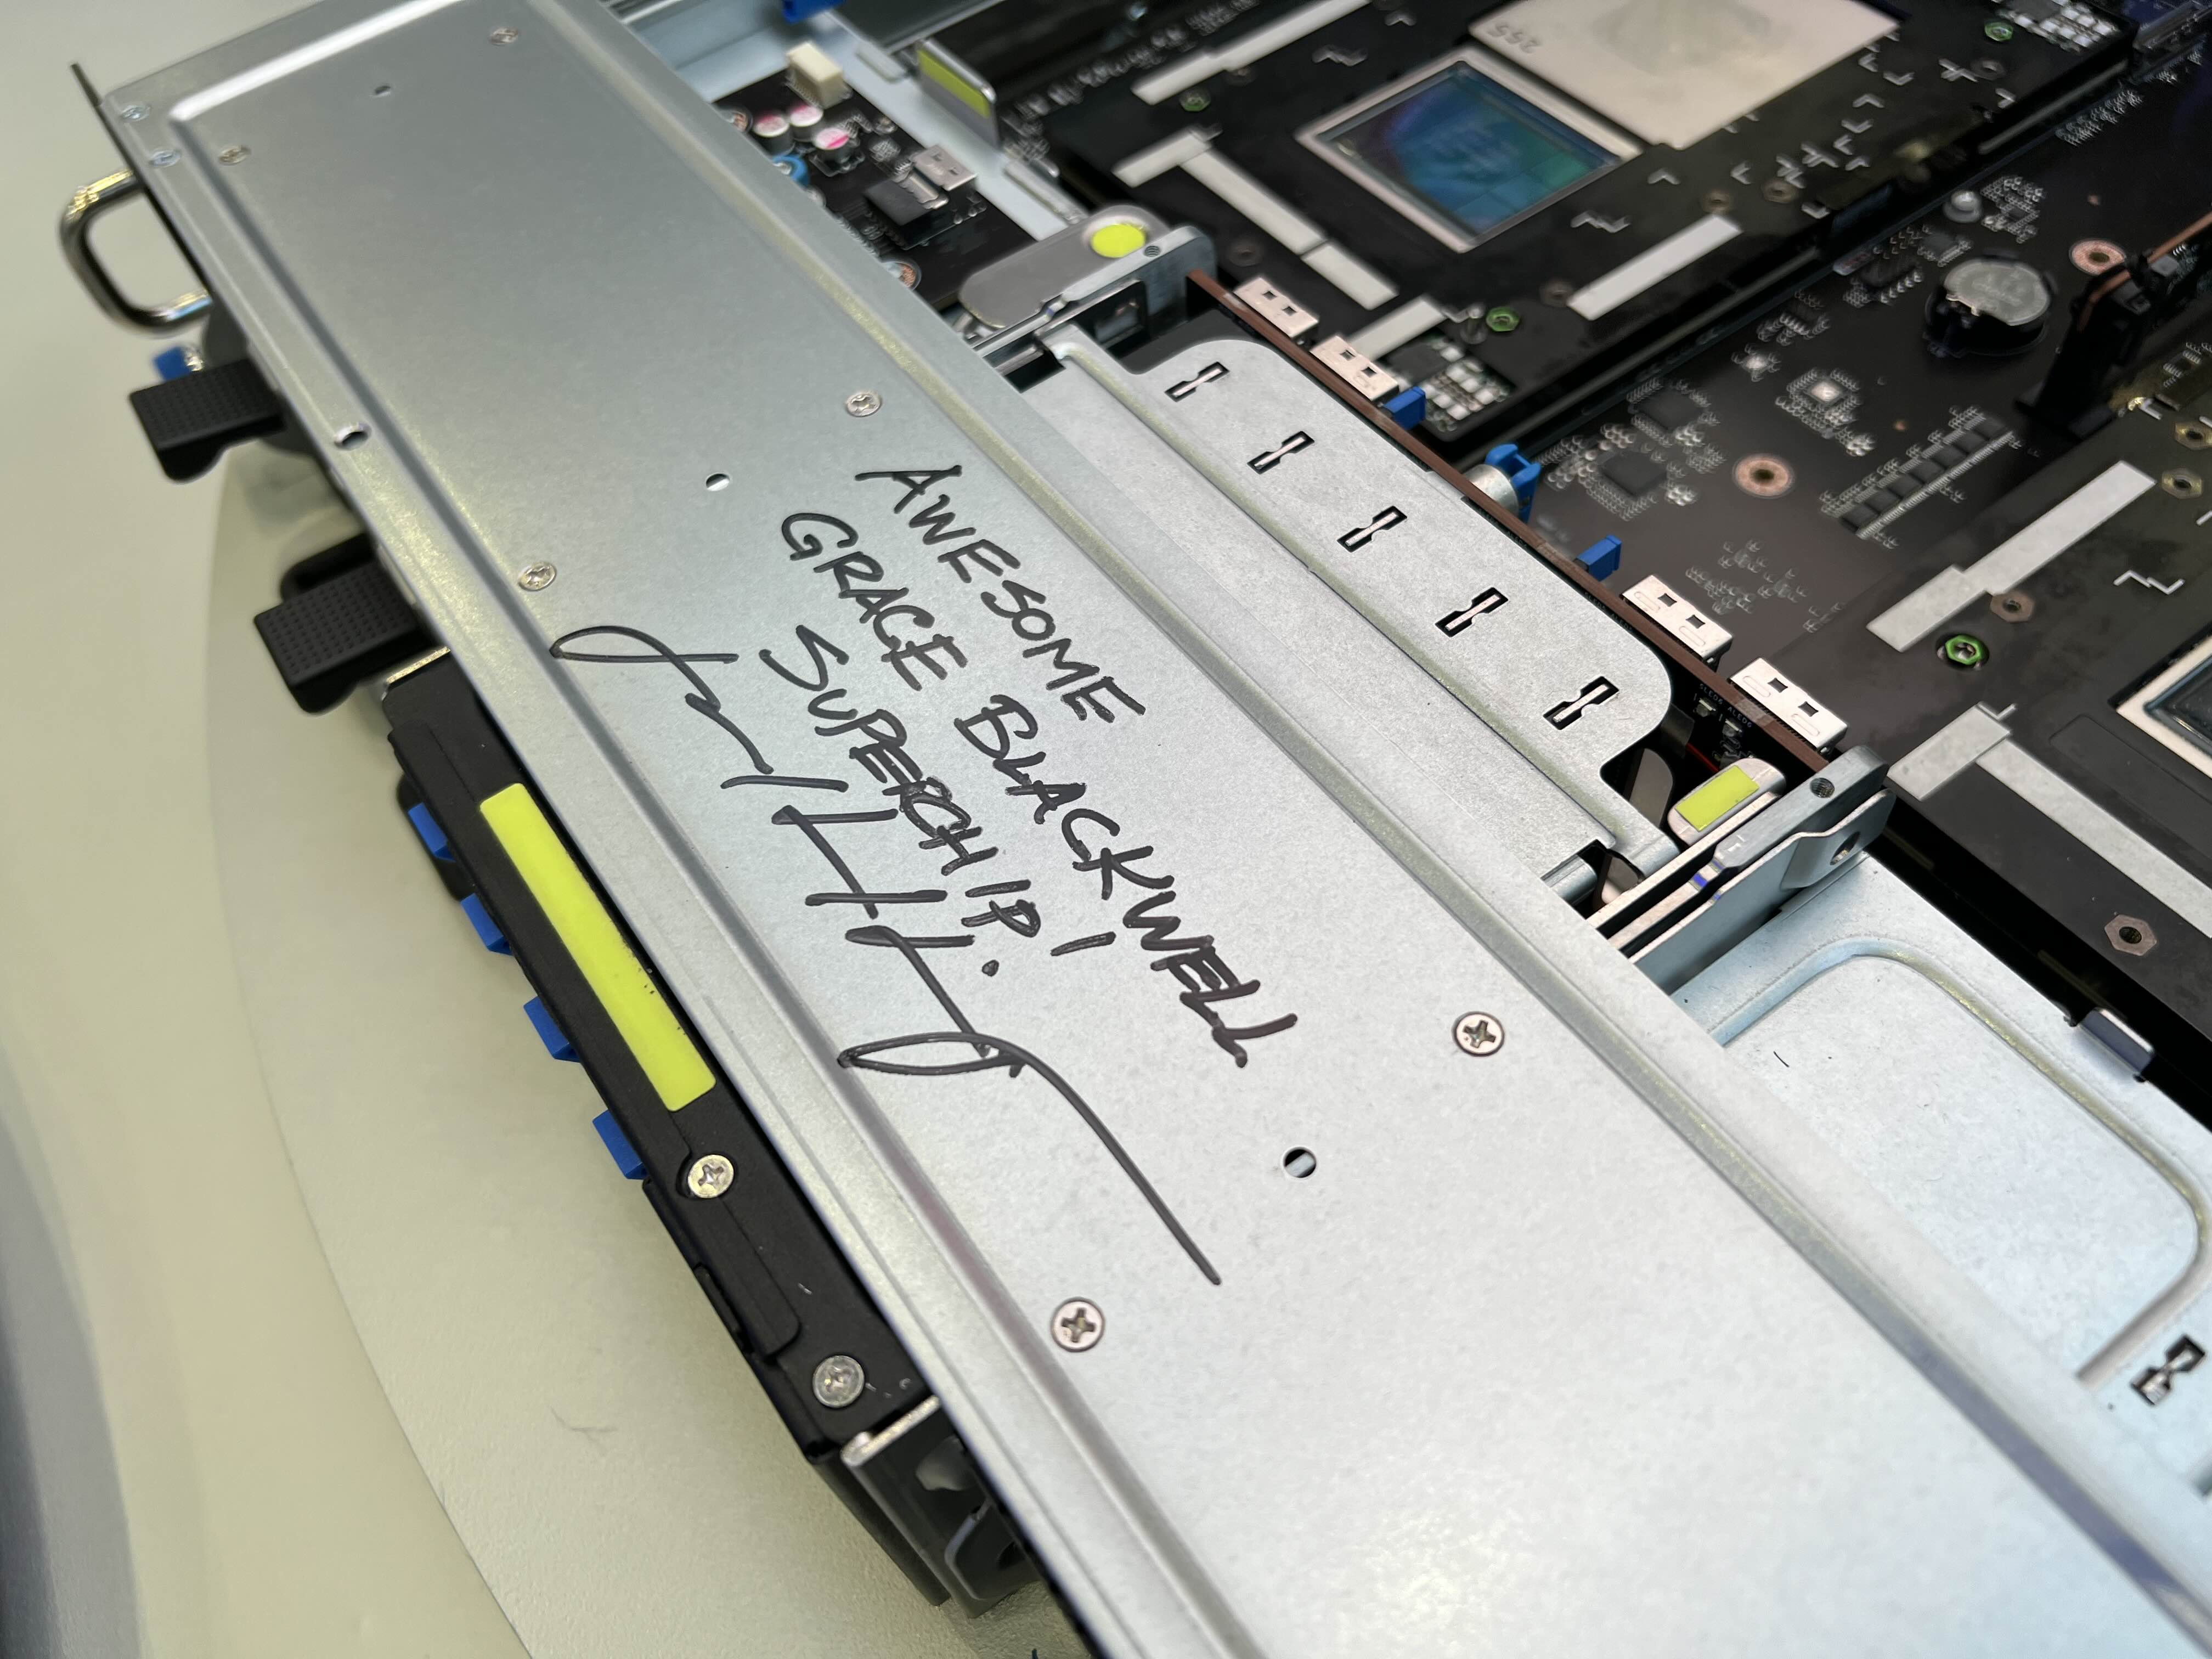 AWESOME
GRACE BLACKWELL
SUPERCHIP!
255